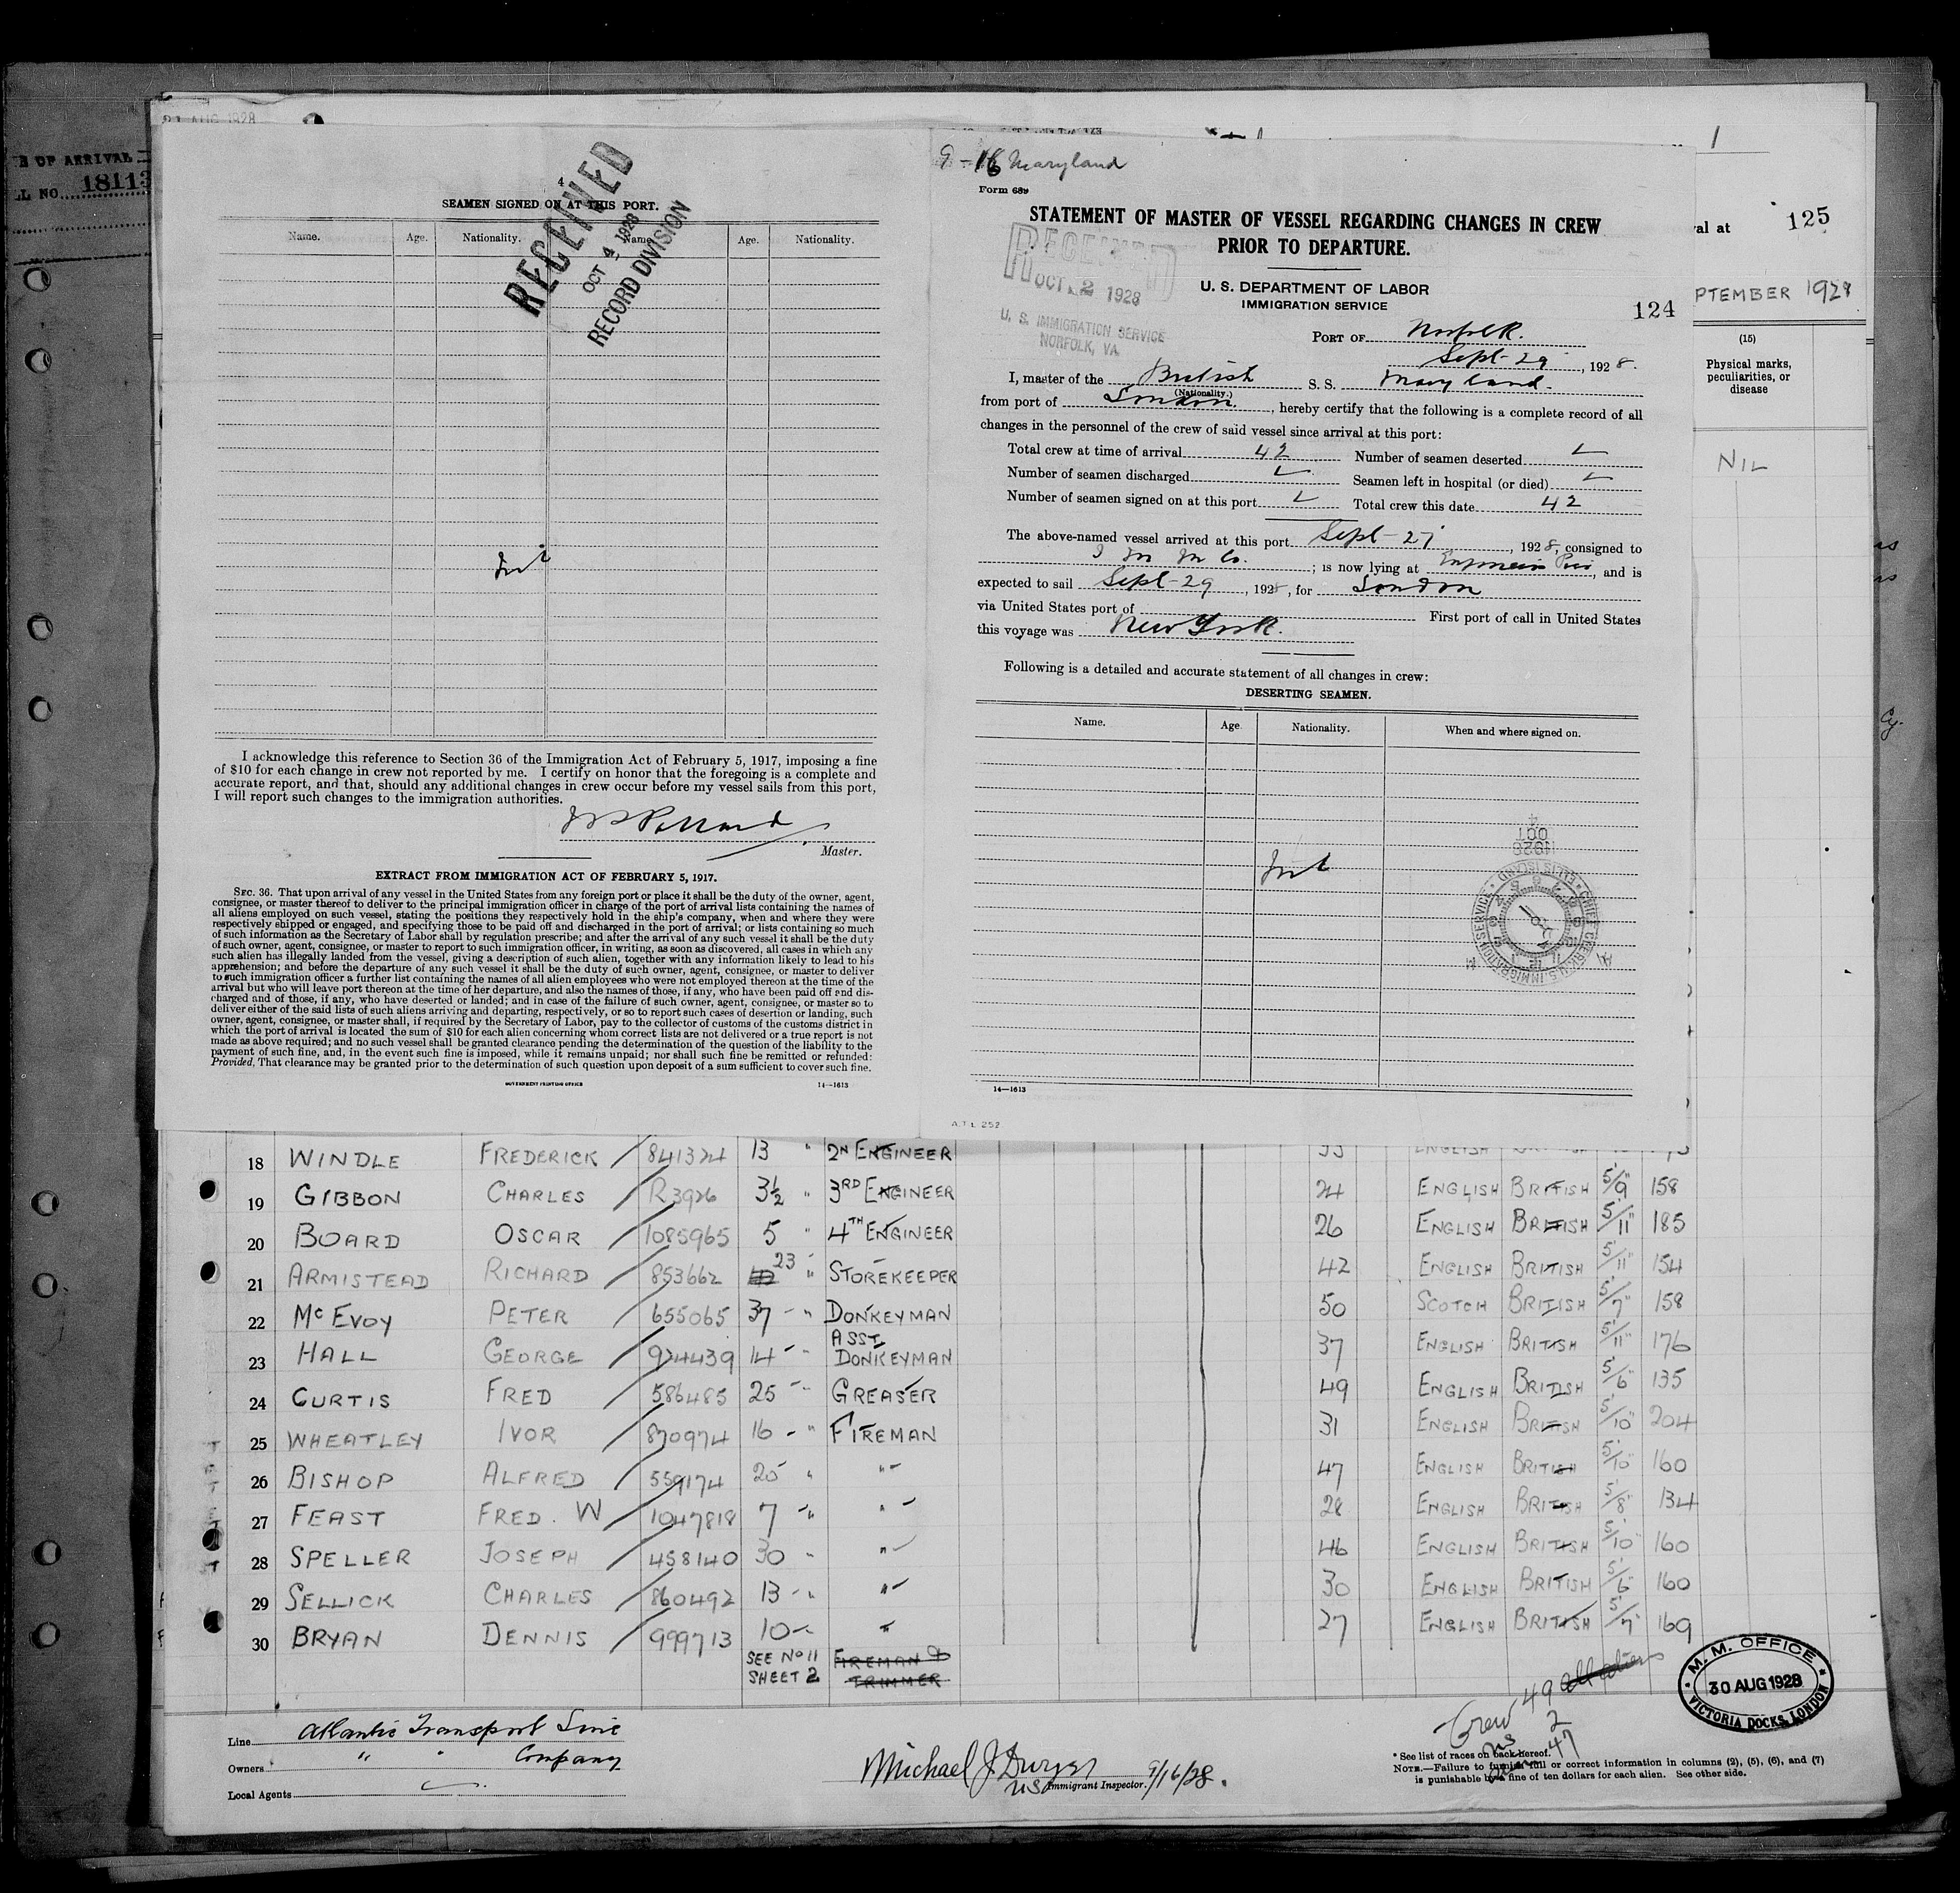 21 AUG 1928
E OF ARRIVAL
LL NO. 18113
4
SEAMEN SIGNED ON AT THIS PORT.
Name. Age. Nationality. Name. Age. Nationality.
RECEIVED
OCT 4 1928
RECORD DIVISION
Nil
I acknowledge this reference to Section 36 of the Immigration Act of February 5, 1917, imposing a fine
of $10 for each change in crew not reported by me. I certify on honor that the foregoing is a complete and
accurate report, and that, should any additional changes in crew occur before my vessel sails from this port,
I will report such changes to the immigration authorities.
Master.
EXTRACT FROM IMMIGRATION ACT OF FEBRUARY 5, 1917.
SEC. 36. That upon arrival of any vessel in the United States from any foreign port or place it shall be the duty of the owner, agent,
consignee, or master thereof to deliver to the principal immigration officer in charge of the port of arrival lists containing the names of
all aliens employed on such vessel, stating the positions they respectively hold in the ship's company, when and where they were
respectively shipped or engaged, and specifying those to be paid off and discharged in the port of arrival; or lists containing so much
of such information as the Secretary of Labor shall by regulation prescribe; and after the arrival of any such vessel it shall be the duty
of such owner, agent, consignee, or master to report to such immigration officer, in writing, as soon as discovered, all cases in which any
such alien has illegally landed from the vessel, giving a description of such alien, together with any information likely to lead to his
apprehension; and before the departure of any such vessel it shall be the duty of such owner, agent, consignee, or master to deliver
to such immigration officer a further list containing the names of all alien employees who were not employed thereon at the time of the
arrival but who will leave port thereon at the time of her departure, and also the names of those, if any, who have been paid off and dis-
charged and of those, if any, who have deserted or landed; and in case of the failure of such owner, agent, consignee, or master so to
deliver either of the said lists of such aliens arriving and departing, respectively, or so to report such cases of desertion or landing, such
owner, agent, consignee, or master shall, if required by the Secretary of Labor, pay to the collector of customs of the customs district in
which the port of arrival is located the sum of $10 for each alien concerning whom correct lists are not delivered or a true report is not
made as above required; and no such vessel shall be granted clearance pending the determination of the question of the liability to the
payment of such fine, and, in the event such fine is imposed, while it remains unpaid; nor shall such fine be remitted or refunded:
Provided, That clearance may be granted prior to the determination of such question upon deposit of a sum sufficient to cover such fine.
GOVERNMENT PRINTING OFFICE 14—1613
9-16 Maryland
Form 689
STATEMENT OF MASTER OF VESSEL REGARDING CHANGES IN CREW
PRIOR TO DEPARTURE.
RECEIVED
OCT 2 1928
U. S. IMMIGRATION SERVICE
NORFOLK, VA.
U. S. DEPARTMENT OF LABOR
IMMIGRATION SERVICE
124
PORT OF Norfolk.
Sept-29, 1928.
I, master of the British S. S. Maryland.
(Nationality.)
from port of London, hereby certify that the following is a complete record of all
changes in the personnel of the crew of said vessel since arrival at this port:
Total crew at time of arrival 42 Number of seamen deserted
Number of seamen discharged Seamen left in hospital (or died)
Number of seamen signed on at this port Total crew this date 42
The above-named vessel arrived at this port Sept-27, 1928, consigned to
I M M Co.; is now lying at, and is
expected to sail Sept-29, 1928, for London
via United States port of First port of call in United States
this voyage was New York.
Following is a detailed and accurate statement of all changes in crew:
DESERTING SEAMEN.
Name. Age. Nationality. When and where signed on.
Nil
OCT 4
1928
CHIEF CLERK U.S. IMMIGRATION SERVICE ELLIS ISLAND
14—1613
A.T.L. 252
1
val at 125
PTEMBER 1928
(15)
Physical marks,
peculiarities, or
disease
NIL
18 WINDLE FREDERICK 841324 13 " 2N ENGINEER 33 ENGLISH
19 GIBBON CHARLES R3926 3½ " 3RD ENGINEER 24 ENGLISH BRITISH 5'/9" 158
20 BOARD OSCAR 1085965 5 " 4TH ENGINEER 26 ENGLISH BRITISH 5'/11" 185
21 ARMISTEAD RICHARD 853662 23 " STOREKEEPER 42 ENGLISH BRITISH 5'/11" 154
22 McEVOY PETER 655065 37 " DONKEYMAN 50 SCOTCH BRITISH 5'/7" 158
23 HALL GEORGE 924439 14 " ASST DONKEYMAN 37 ENGLISH BRITISH 5'/11" 176
24 CURTIS FRED 586485 25 " GREASER 49 ENGLISH BRITISH 5'/6" 135
25 WHEATLEY IVOR 870974 16 " FIREMAN 31 ENGLISH BRITISH 5'/10" 204
26 BISHOP ALFRED 559174 25 " " 47 ENGLISH BRITISH 5'/10" 160
27 FEAST FRED. W 1047818 7 " " 28 ENGLISH BRITISH 5'/8" 134
28 SPELLER JOSEPH 458140 30 " " 46 ENGLISH BRITISH 5'/10" 160
29 SELLICK CHARLES 860492 13 " " 30 ENGLISH BRITISH 5'/6" 160
30 BRYAN DENNIS 999713 10 " " 27 ENGLISH BRITISH 5'/7" 169
SEE No 11 FIREMAN &
SHEET 2 TRIMMER
M. M. OFFICE
30 AUG 1928
VICTORIA DOCKS, LONDON
Crew 49
2
47
Line Atlantic Transport Line
Owners " " Company
Local Agents
Michael J Dwyer 9/16/28.
US Immigrant Inspector.
* See list of races on back hereof.
NOTE.—Failure to furnish full or correct information in columns (2), (5), (6), and (7)
is punishable by a fine of ten dollars for each alien. See other side.